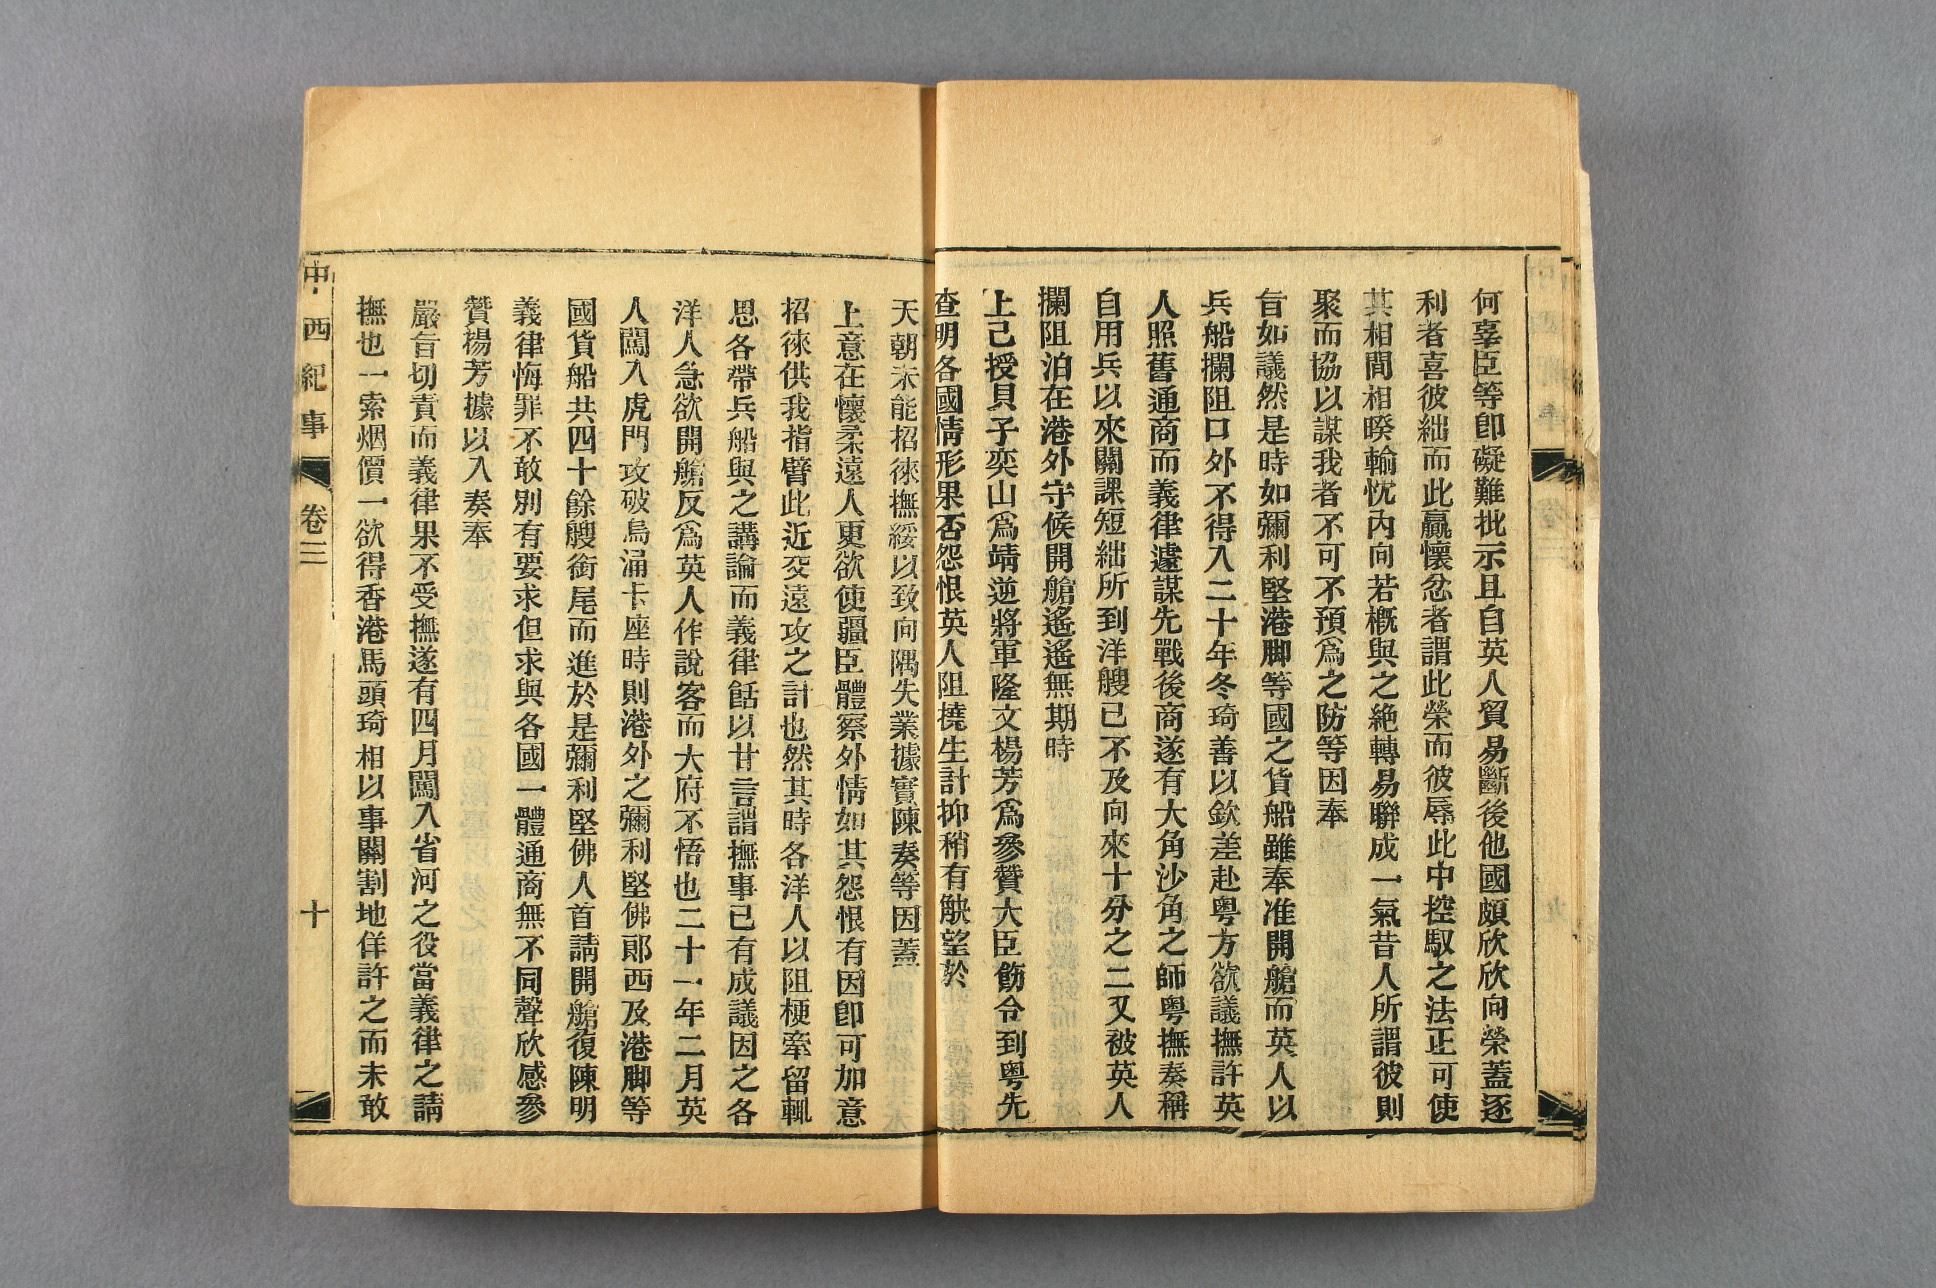 何辜臣等卽礙難批示且自英人貿易斷後他國頗欣欣向榮蓋逐
利者喜彼絀而此贏懷忿者謂此榮而彼辱此中控馭之法正可使
其相間相暌輸忱內向若槪與之絶轉易聯成一氣昔人所謂彼則
聚而協以謀我者不可不預爲之防等因奉
旨如議然是時如彌利堅港脚等國之貨船雖奉准開艙而英人以
兵船攔阻口外不得入二十年冬琦善以欽差赴粤方欲議撫許英
人照舊通商而義律遽謀先戰後商遂有大角沙角之師粤撫奏稱
自用兵以來關課短絀所到洋艘已不及向來十分之二又被英人
攔阻泊在港外守候開艙遙遙無期時
上已授貝子奕山爲靖逆將軍隆文楊芳爲參贊大臣飭令到粤先
查明各國情形果否怨恨英人阻撓生計抑稍有觖望於
天朝未能招徠撫綏以致向隅失業據實陳奏等因蓋
上意在懷柔遠人更欲使疆臣體察外情如其怨恨有因卽可加意
招徠供我指臂此近交遠攻之計也然其時各洋人以阻梗牽留輒
思各帶兵船與之講論而義律餂以甘言謂撫事已有成議因之各
洋人急欲開艙反爲英人作說客而大府不悟也二十一年二月英
人闖入虎門攻破烏涌卡座時則港外之彌利堅佛郞西及港脚等
國貨船共四十餘艘銜尾而進於是彌利堅佛人首請開艙復陳明
義律悔罪不敢別有要求但求與各國一體通商無不同聲欣感參
贊楊芳據以入奏奉
嚴旨切責而義律果不受撫遂有四月闖入省河之役當義律之請
撫也一索烟價一欲得香港馬頭琦相以事關割地佯許之而未敢
中西紀事 卷三 十